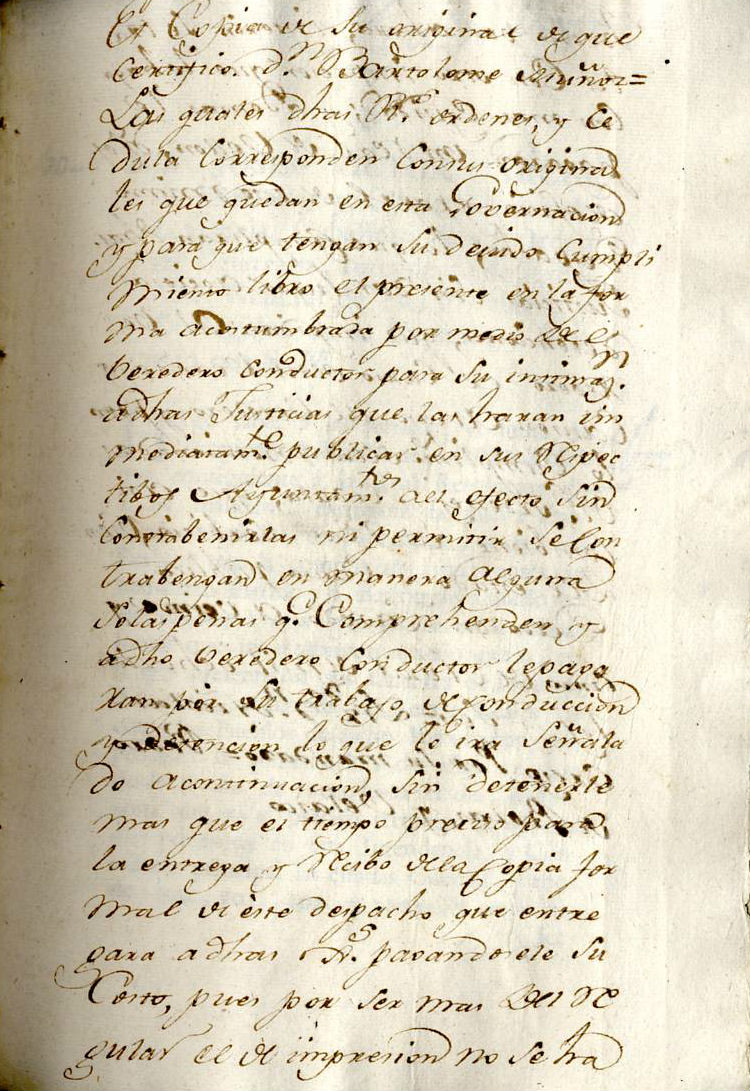 Es Copia de su original de que
Certifico. D.n Bartolome Muñoz=
Las quales dhas R.s ordenes, y Ce
dula Corresponden Consus origina
les que quedan en esta Governacion
y para que tengan su devido Cumpli
miento libro el presente en la for
ma acostumbrada por medio del
Veredero Conductor para su intimaz.n
adhas Justicias que las haran im
mediatam.te publicar en sus Respec
tibos Ayuntam.tos al efecto sin
Contrabenirlas ni permitir se Con
trabengan en manera Alguna
solaspenas q.e Comprehenden y
adho Veredero Conductor lepaga
ran por su trabajo de Conduccion
y detencion lo que le ira señala
do acontinuacion, sin detenerle
mas que el tiempo preciso para
la entrega y Recibo dela Copia for
mal de este despacho que entre
gara adhas pagandosele su
Costo, pues por ser mas Del Re
gular el de impresion no se ha